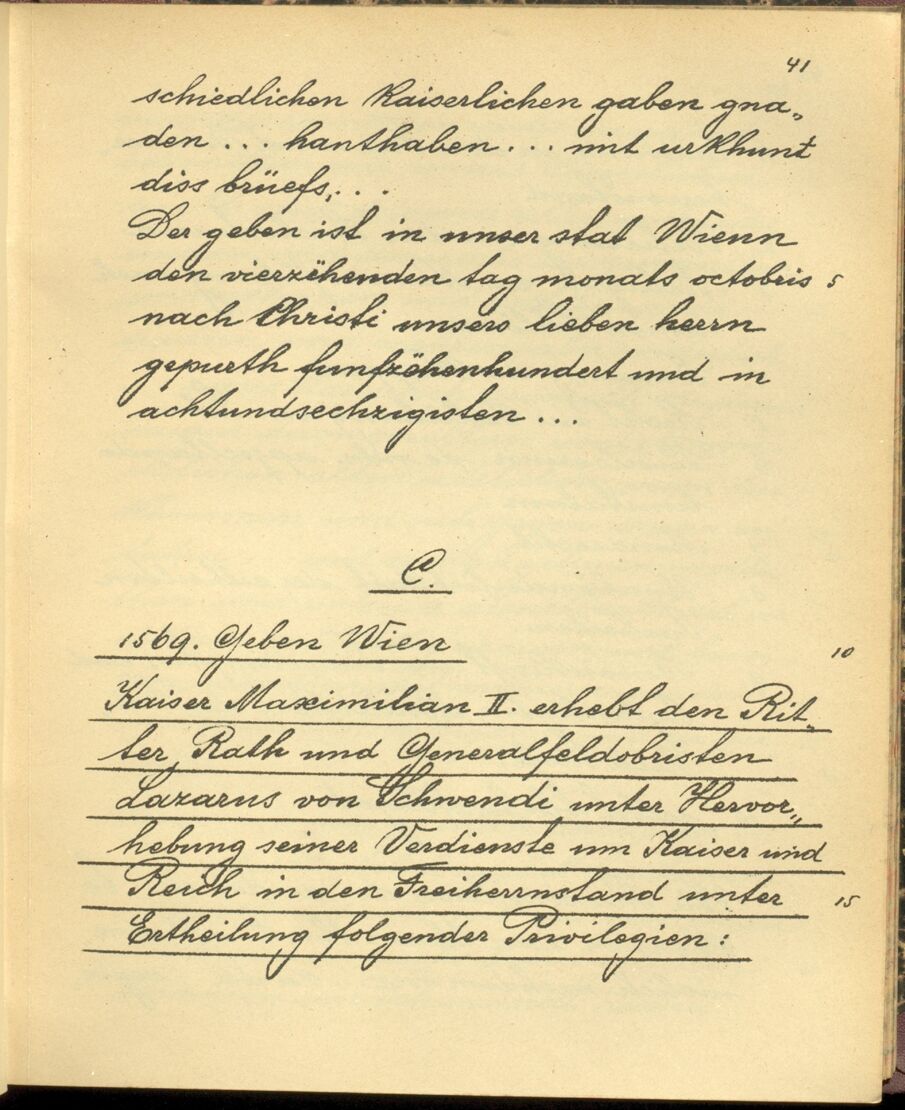 41
schiedlichen Kaiserlichen gaben gna„
den ... hanthaben ... mit urkhunt
diss brüefs, ...
Der geben ist in unser stat Wienn
den vierzëhenden tag monats octobris 5
nach Christi unsers lieben herrn
gepurth funfzëhenhundert und in
achtundsechzigisten ...
C.
1569. Geben Wien 10
Kaiser Maximilian II. erhebt den Rit„
ter, Rath und Generalfeldobristen
Lazarus von Schwendi unter Hervor„
hebung seiner Verdienste um Kaiser und
Reich in den Freiherrnstand unter 15
Ertheilung folgender Privilegien: